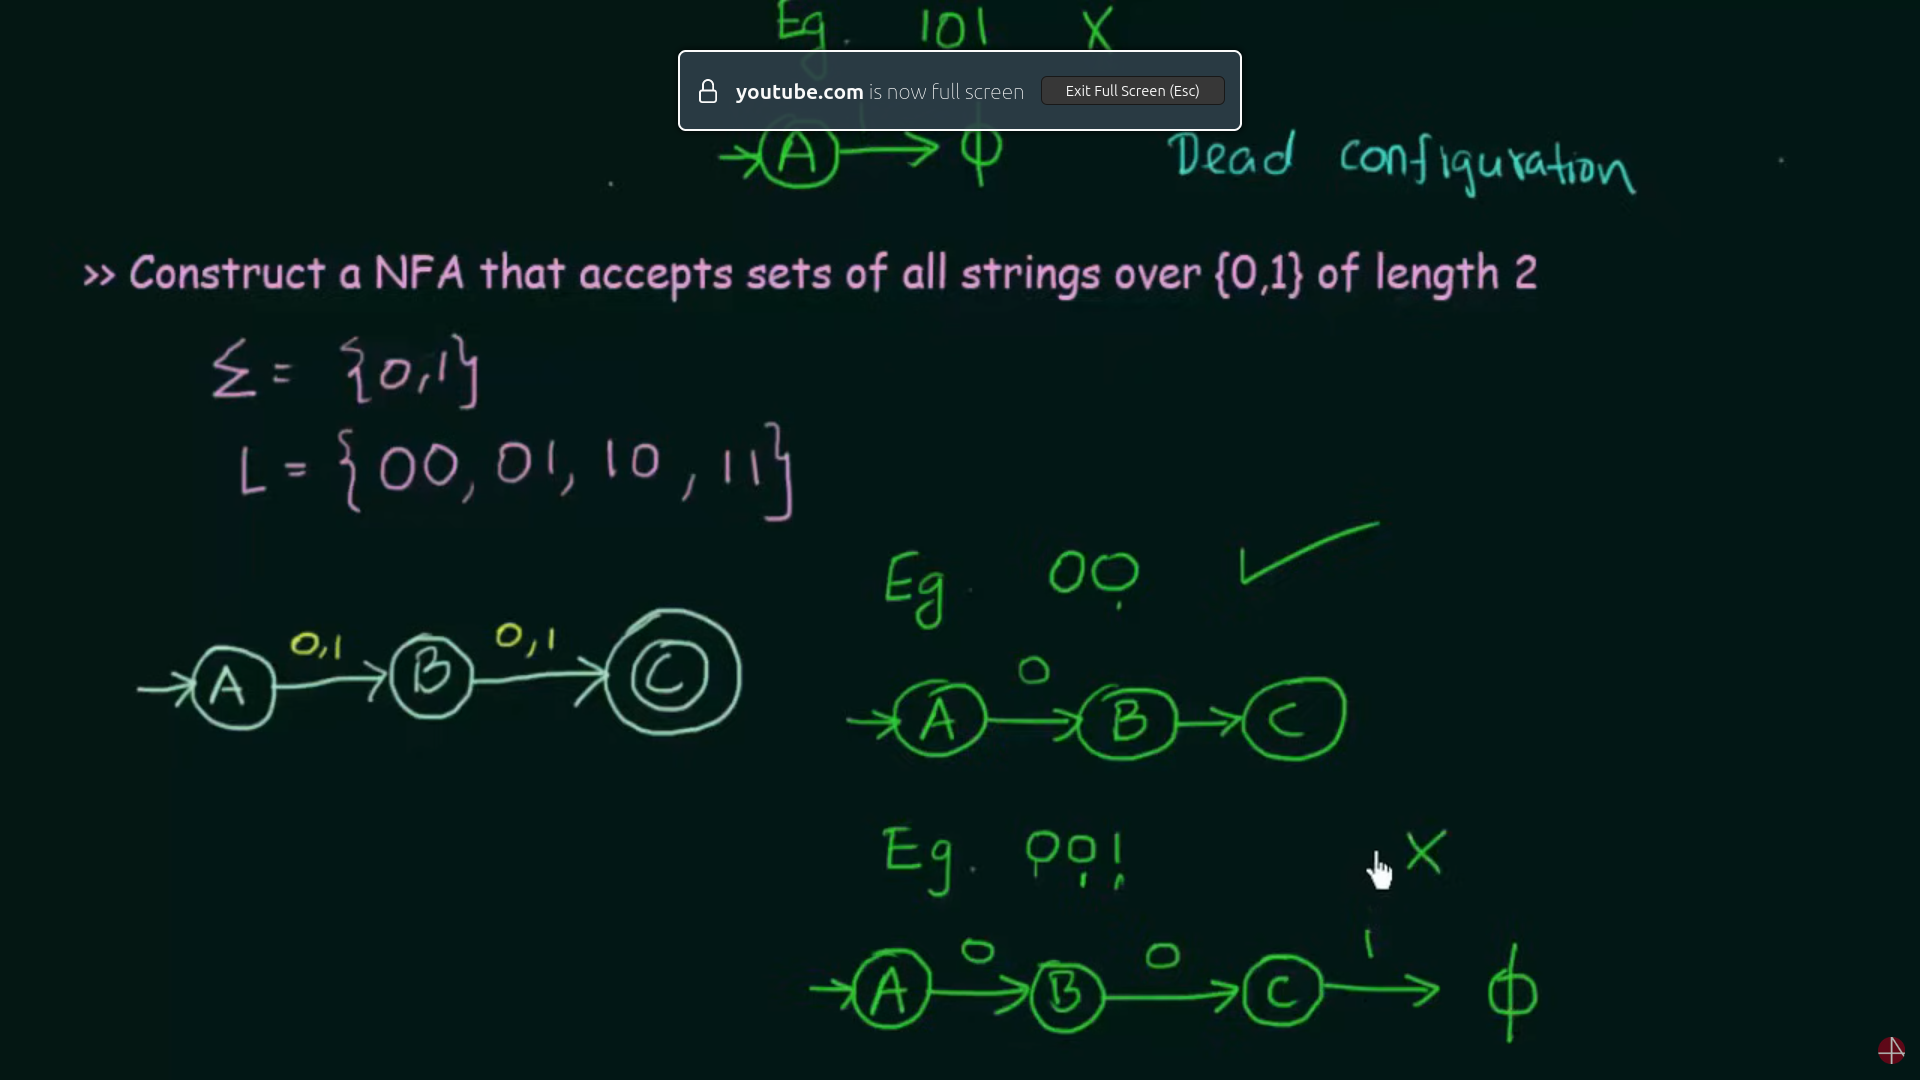 Eg. 101 X
youtube.com is now full screen Exit Full Screen (Esc)
A ϕ Dead configuration
>> Construct a NFA that accepts sets of all strings over {0,1} of length 2
Σ = {0,1}
L = {00, 01, 10, 11}
Eg. 00 ✓
0,1 0,1
A B C
0
A B C
Eg. 001 X
0 0 1
A B C ϕ